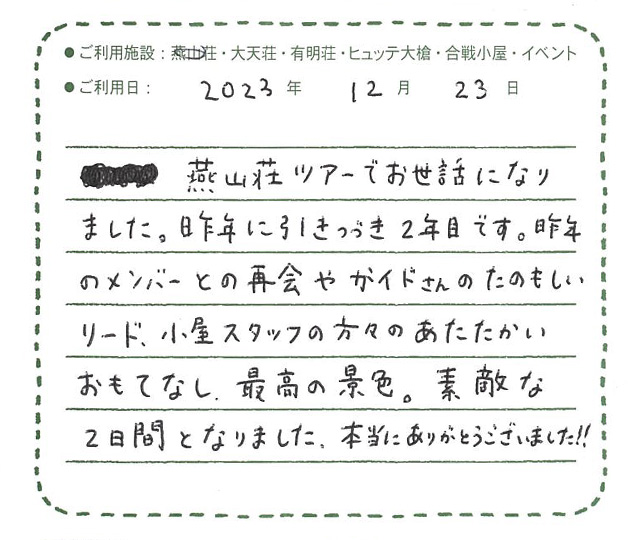 ●ご利用施設：燕山荘・大天荘・有明荘・ヒュッテ大槍・合戦小屋・イベント
●ご利用日： 2023 年 12 月 23 日
燕山荘ツアーでお世話になり
ました。昨年に引きつづき2年目です。昨年
のメンバーとの再会やガイドさんのたのもしい
リード、小屋スタッフの方々のあたたかい
おもてなし、最高の景色。素敵な
2日間となりました、本当にありがとうございました!!